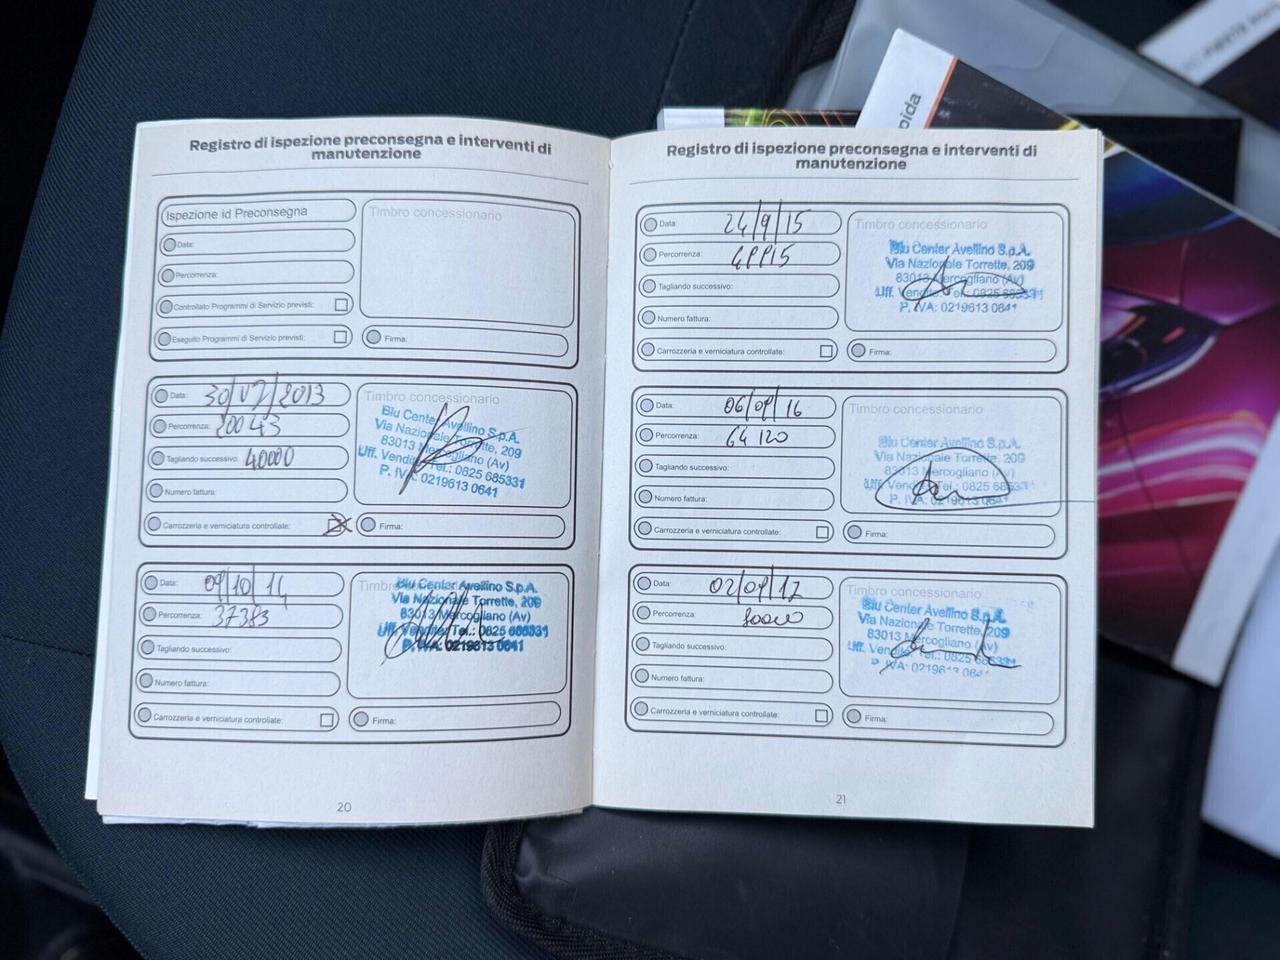 Registro di ispezione preconsegna e interventi di
manutenzione
Ispezione id Preconsegna
Data:
Percorrenza:
Controllato Programmi di Servizio previsti:
Eseguito Programmi di Servizio previsti:
Timbro concessionario
Firma:
Data: 30/07/2013
Percorrenza: 20043
Tagliando successivo: 40000
Numero fattura:
Carrozzeria e verniciatura controllate:
Timbro concessionario
Blu Center Avellino S.p.A.
Via Nazionale Torrette, 209
83013 Mercogliano (Av)
Uff. Vendite: Tel.: 0825 685331
P. IVA: 0219613 0641
Firma:
Data: 09/10/14
Percorrenza: 37383
Tagliando successivo:
Numero fattura:
Carrozzeria e verniciatura controllate:
Timbro
Blu Center Avellino S.p.A.
Via Nazionale Torrette, 209
83013 Mercogliano (Av)
Uff. Vendite: Tel.: 0825 685331
P. IVA: 0219613 0641
Firma:
20
Registro di ispezione preconsegna e interventi di
manutenzione
Data: 24/9/15
Percorrenza:
Tagliando successivo:
Numero fattura:
Carrozzeria e verniciatura controllate:
Timbro concessionario
Blu Center Avellino S.p.A.
Via Nazionale Torrette, 209
83013 Mercogliano (Av)
Uff. Vendite: Tel.: 0825 685331
P. IVA: 0219613 0641
Firma:
Data: 06/09/16
Percorrenza: 64120
Tagliando successivo:
Numero fattura:
Carrozzeria e verniciatura controllate:
Timbro concessionario
Blu Center Avellino S.p.A.
Via Nazionale Torrette, 209
83013 Mercogliano (Av)
Uff. Vendite: Tel.: 0825 685331
P. IVA: 0219613 0641
Firma:
Data: 02/09/17
Percorrenza: 80000
Tagliando successivo:
Numero fattura:
Carrozzeria e verniciatura controllate:
Timbro concessionario
Blu Center Avellino S.p.A.
Via Nazionale Torrette, 209
83013 Mercogliano (Av)
Uff. Vendite: Tel.: 0825 685331
P. IVA: 0219613 0641
Firma:
21